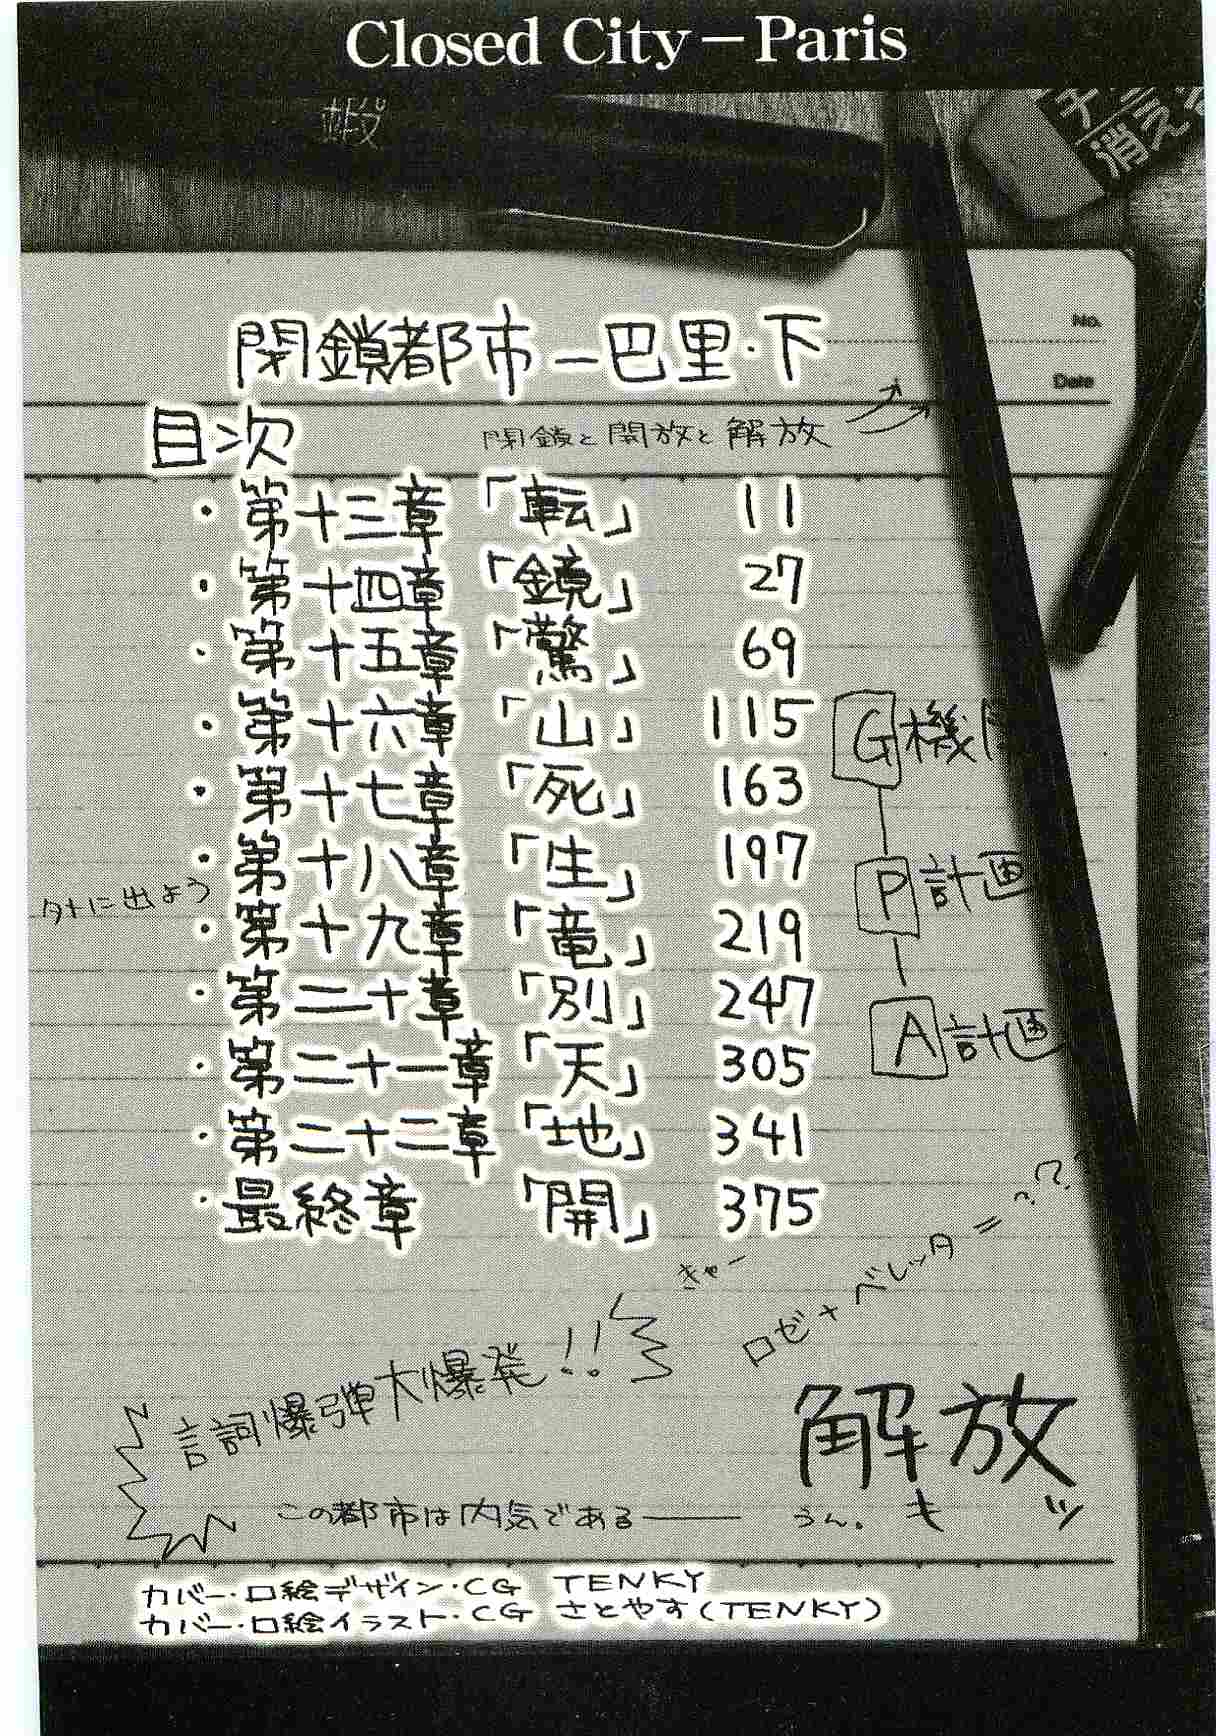 Closed City－Paris
消え
No.
Date
閉鎖都市－巴里・下
目次
閉鎖と開放と解放
・第十三章「転」 11
・第十四章「鏡」 27
・第十五章「驚」 69
・第十六章「山」 115
・第十七章「死」 163
・第十八章「生」 197
・第十九章「竜」 219
・第二十章「別」 247
・第二十一章「天」 305
・第二十二章「地」 341
・最終章「開」 375
G機
P計画
A計画
外に出よう
きゃー
ロゼ＋ベレッタ＝??
言詞爆弾大爆発!!
解放
キッ
この都市は内気である―― うん。
カバー・口絵デザイン・CG TENKY
カバー・口絵イラスト・CG さとやす(TENKY)